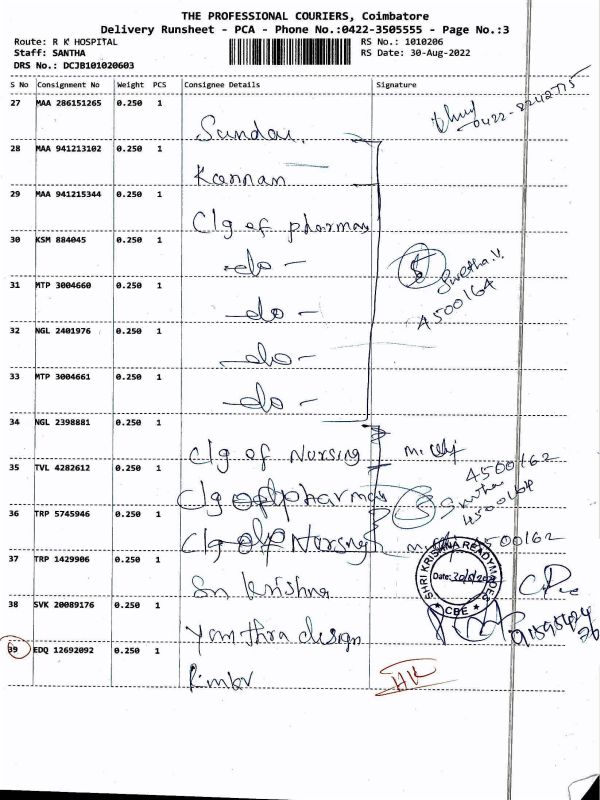 THE PROFESSIONAL COURIERS, Coimbatore
Delivery Runsheet - PCA - Phone No.:0422-3505555 - Page No.:3
Route: R K HOSPITAL
RS No.: 1010206
Staff: SANTHA
RS Date: 30-Aug-2022
DRS No.: DCJB101020603
S No Consignment No Weight PCS Consignee Details Signature
27 MAA 286151265 0.250 1
0422-2242775
Sundar.
28 MAA 941213102 0.250 1
Kannan
29 MAA 941215344 0.250 1
Clg of pharmacy
30 KSM 884045 0.250 1
-do-
Swetha.V.
31 MTP 3004660 0.250 1
4500164
-do-
32 NGL 2401976 0.250 1
-do-
33 MTP 3004661 0.250 1
-do-
34 NGL 2398881 0.250 1
Clg of Nursing
35 TVL 4282612 0.250 1
4500162
Clg of pharmacy
4500164
36 TRP 5745946 0.250 1
Clg of Nursing
4500162
37 TRP 1429906 0.250 1
SHRI KRISHNA READYMADES
Date:
CBE
Sri Krishna
38 SVK 20089176 0.250 1
Yanthra design
39 EDQ 12692092 0.250 1
HK